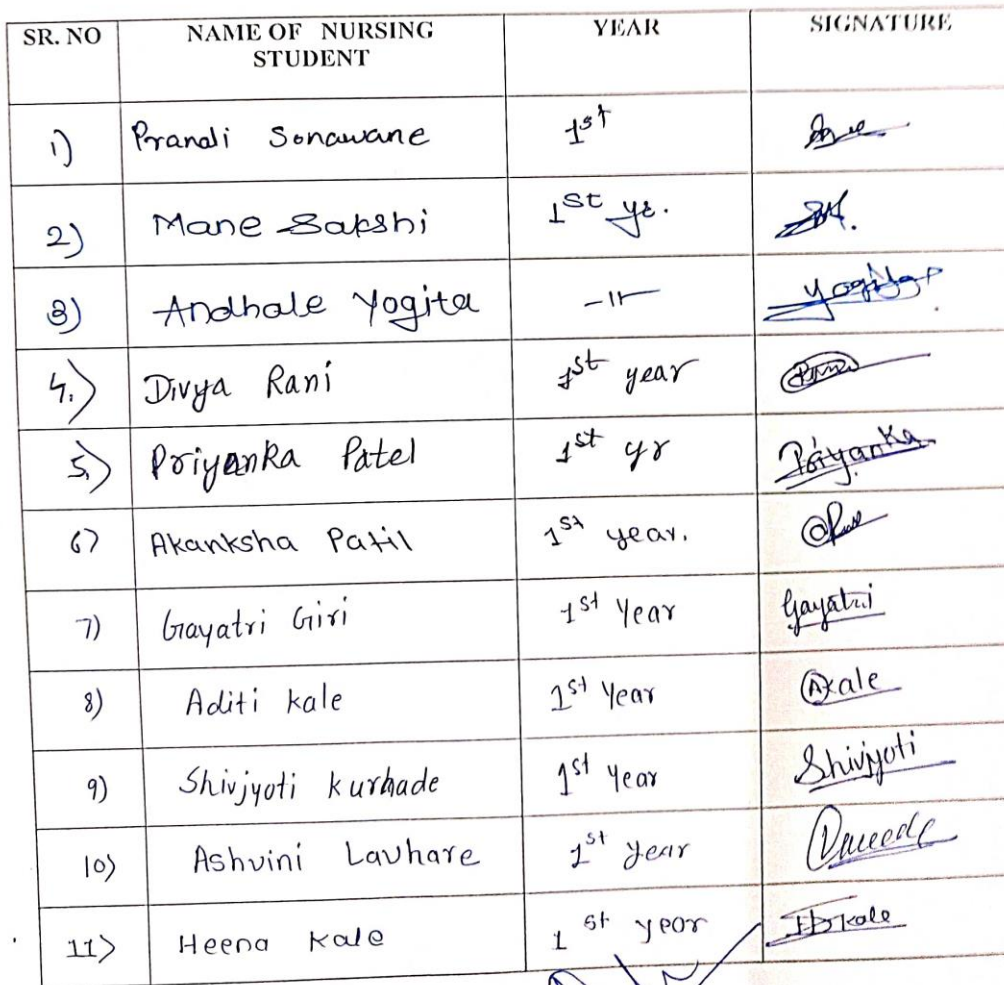 SR. NO NAME OF NURSING STUDENT YEAR SIGNATURE
1) Pranali Sonawane 1st
2) Mane Sakshi 1st yr.
3) Andhale Yogita -11- Yogita
4.) Divya Rani 1st year
5.) Priyanka Patel 1st yr Priyanka
6) Akanksha Patil 1st year.
7) Gayatri Giri 1st Year Gayatri
8) Aditi Kale 1st Year Akale
9) Shivjyoti Kurhade 1st Year Shivjyoti
10) Ashvini Lavhare 1st year
11) Heena Kale 1st year